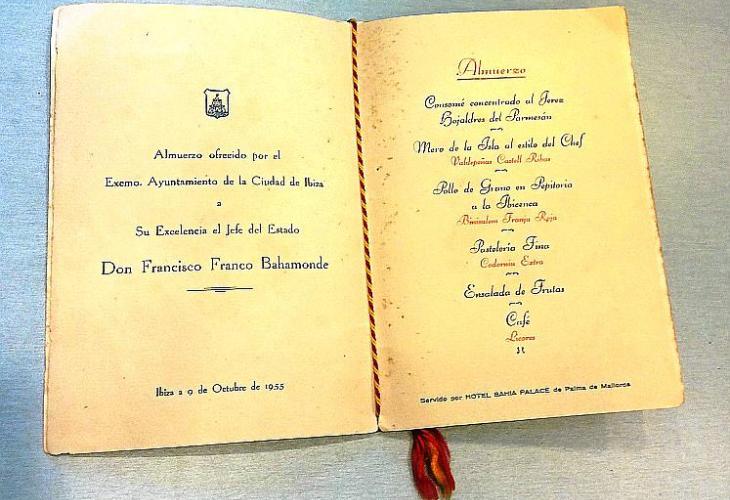 Almuerzo ofrecido por el
Excmo. Ayuntamiento de la Ciudad de Ibiza
a
Su Excelencia el Jefe del Estado
Don Francisco Franco Bahamonde
Ibiza a 9 de Octubre de 1955
Almuerzo
Consomé concentrado al Jerez
Hojaldres del Parmesán
Mero de la Isla al estilo del Chef
Valdepeñas Castell Ribas
Pollo de Grano en Pepitoria
a la Ibicenca
Binisalem Franja Roja
Pastelería Fina
Codorniu Extra
Ensalada de Frutas
Café
Licores
Servido por HOTEL BAHIA PALACE de Palma de Mallorca